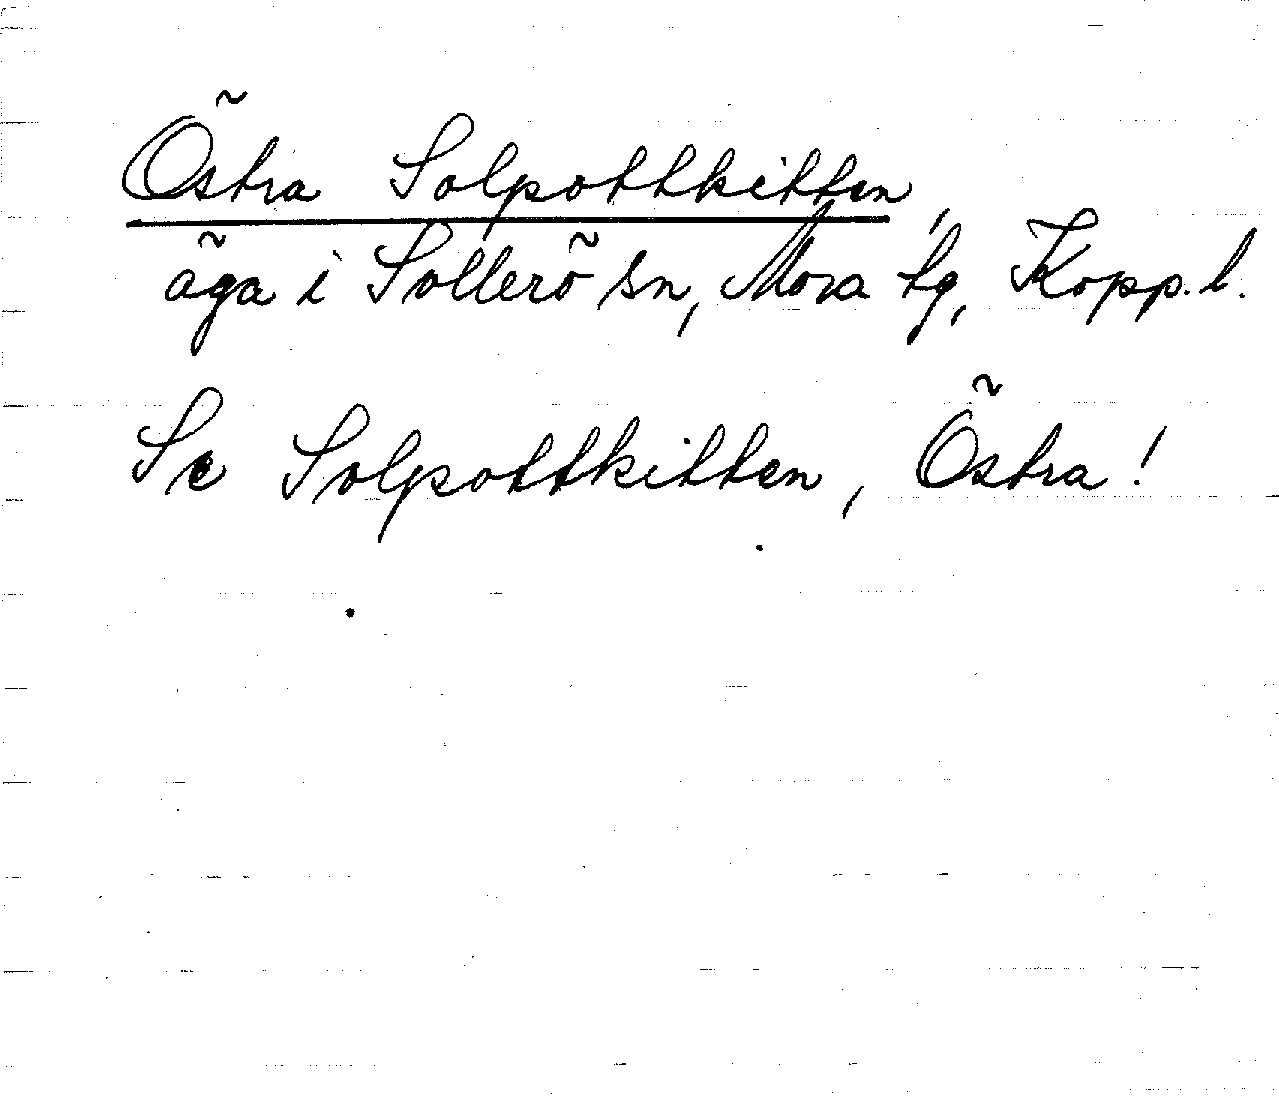 Östra Solpottkitten,
äga i Sollerö sn, Mora tg, Kopp. l.
Se Solpottkitten, Östra!